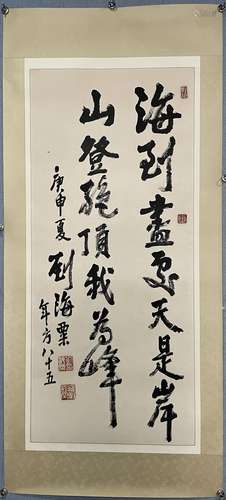 海到盡處天是岸
山登絕頂我為峰
庚申夏
劉海粟
年方八十五